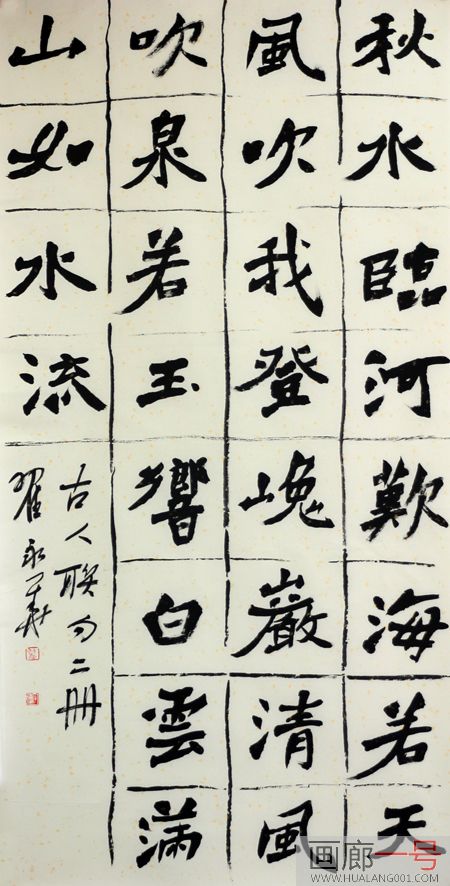 秋水臨河歎海若天
風吹我登巉巖清風
吹泉若玉響白雲滿
山如水流
古人聯句二册
翟永華
画廊一号
WWW.HUALANG001.COM